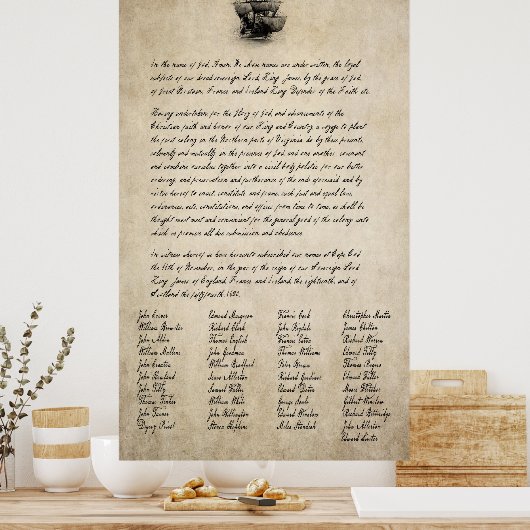 In the name of God, Amen. We whose names are under written, the loyal
subjects of our dread sovereign Lord, King James, by the grace of God,
of Great Britain, France and Ireland King, Defender of the Faith etc.
Having undertaken for the Glory of God, and advancements of the
Christian faith and honor of our King and Country, a voyage to plant
the first colony in the Northern parts of Virginia do by these presents,
solemnly and mutually in the presence of God, and one another, covenant
and combine ourselves together into a civil body politic for our better
ordering, and preservation and furtherance of the ends aforesaid and by
virtue hereof to enact, constitute, and frame, such just and equal laws,
ordinances, acts, constitutions, and offices from time to time, as shall be
thought most meet and convenient for the general good of the colony unto
which we promise all due submission and obedience.
In witness whereof we have hereunto subscribed our names at Cape Cod
the 11th of November, in the year of the reign of our Sovereign Lord
King James of England, France and Ireland, the eighteenth, and of
Scotland the fifty fourth, 1620.
John Carver Edmund Margeson Francis Cook Christopher Martin
William Brewster Richard Clark John Rigdale James Chilton
John Alden Thomas English Francis Eaton Richard Warren
William Mullins John Goodman Thomas Williams Edward Tilly
John Crackston William Bradford Peter Brown Thomas Rogers
John Howland Isaac Allerton Richard Gardiner Edward Fuller
John Tilly Samuel Fuller Edward Doten Moses Fletcher
Thomas Tinker William White George Soule Gilbert Winslow
John Turner John Billington Edward Winslow Richard Bitteridge
Digery Priest Steven Hopkins Miles Standish John Allerton
Edward Liester